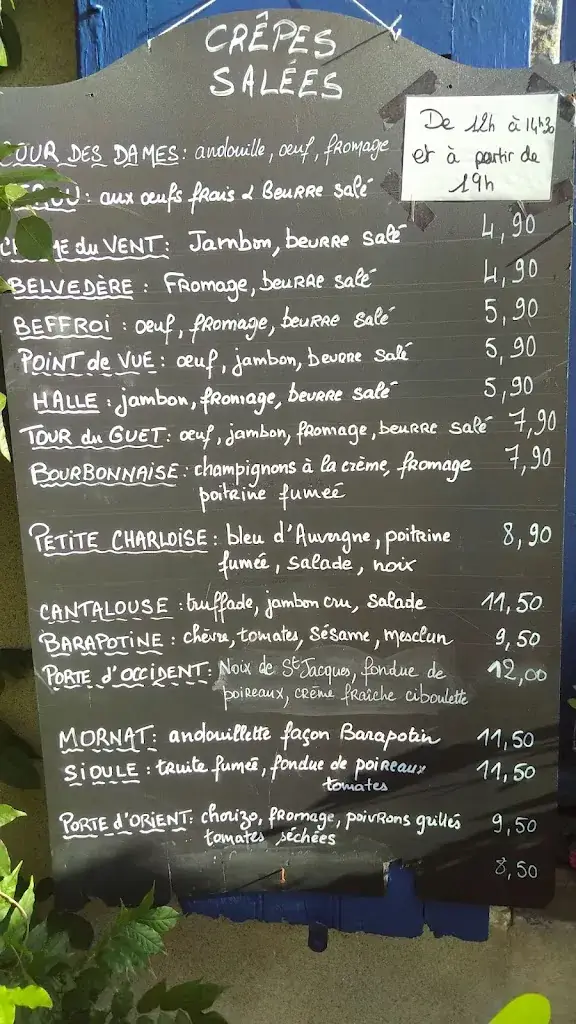 CRÊPES
SALÉES
De 12h à 14h30
et à partir de
19h
COUR DES DAMES : andouille, oeuf, fromage
: aux œufs frais & Beurre salé
du VENT : Jambon, beurre salé 4,90
BELVEDÈRE : Fromage, beurre salé 4,90
BEFFROI : oeuf, fromage, beurre salé 5,90
POINT de VUE : œuf, jambon, beurre salé 5,90
HALLE : jambon, fromage, beurre salé 5,90
TOUR du GUET : œuf, jambon, fromage, beurre salé 7,90
BOURBONNAISE : champignons à la crème, fromage 7,90
poitrine fumée
PETITE CHARLOISE : bleu d'Auvergne, poitrine 8,90
fumée, salade, noix
CANTALOUSE : truffade, jambon cru, salade 11,50
BARAPOTINE : chèvre, tomates, sésame, mesclun 9,50
PORTE d'OCCIDENT : Noix de St Jacques, fondue de 12,00
poireaux, crème fraîche ciboulette
MORNAT : andouillette façon Barapotin 11,50
SIOULE : truite fumée, fondue de poireaux 11,50
tomates
PORTE d'ORIENT : chorizo, fromage, poivrons grillés 9,50
tomates séchées
8,50